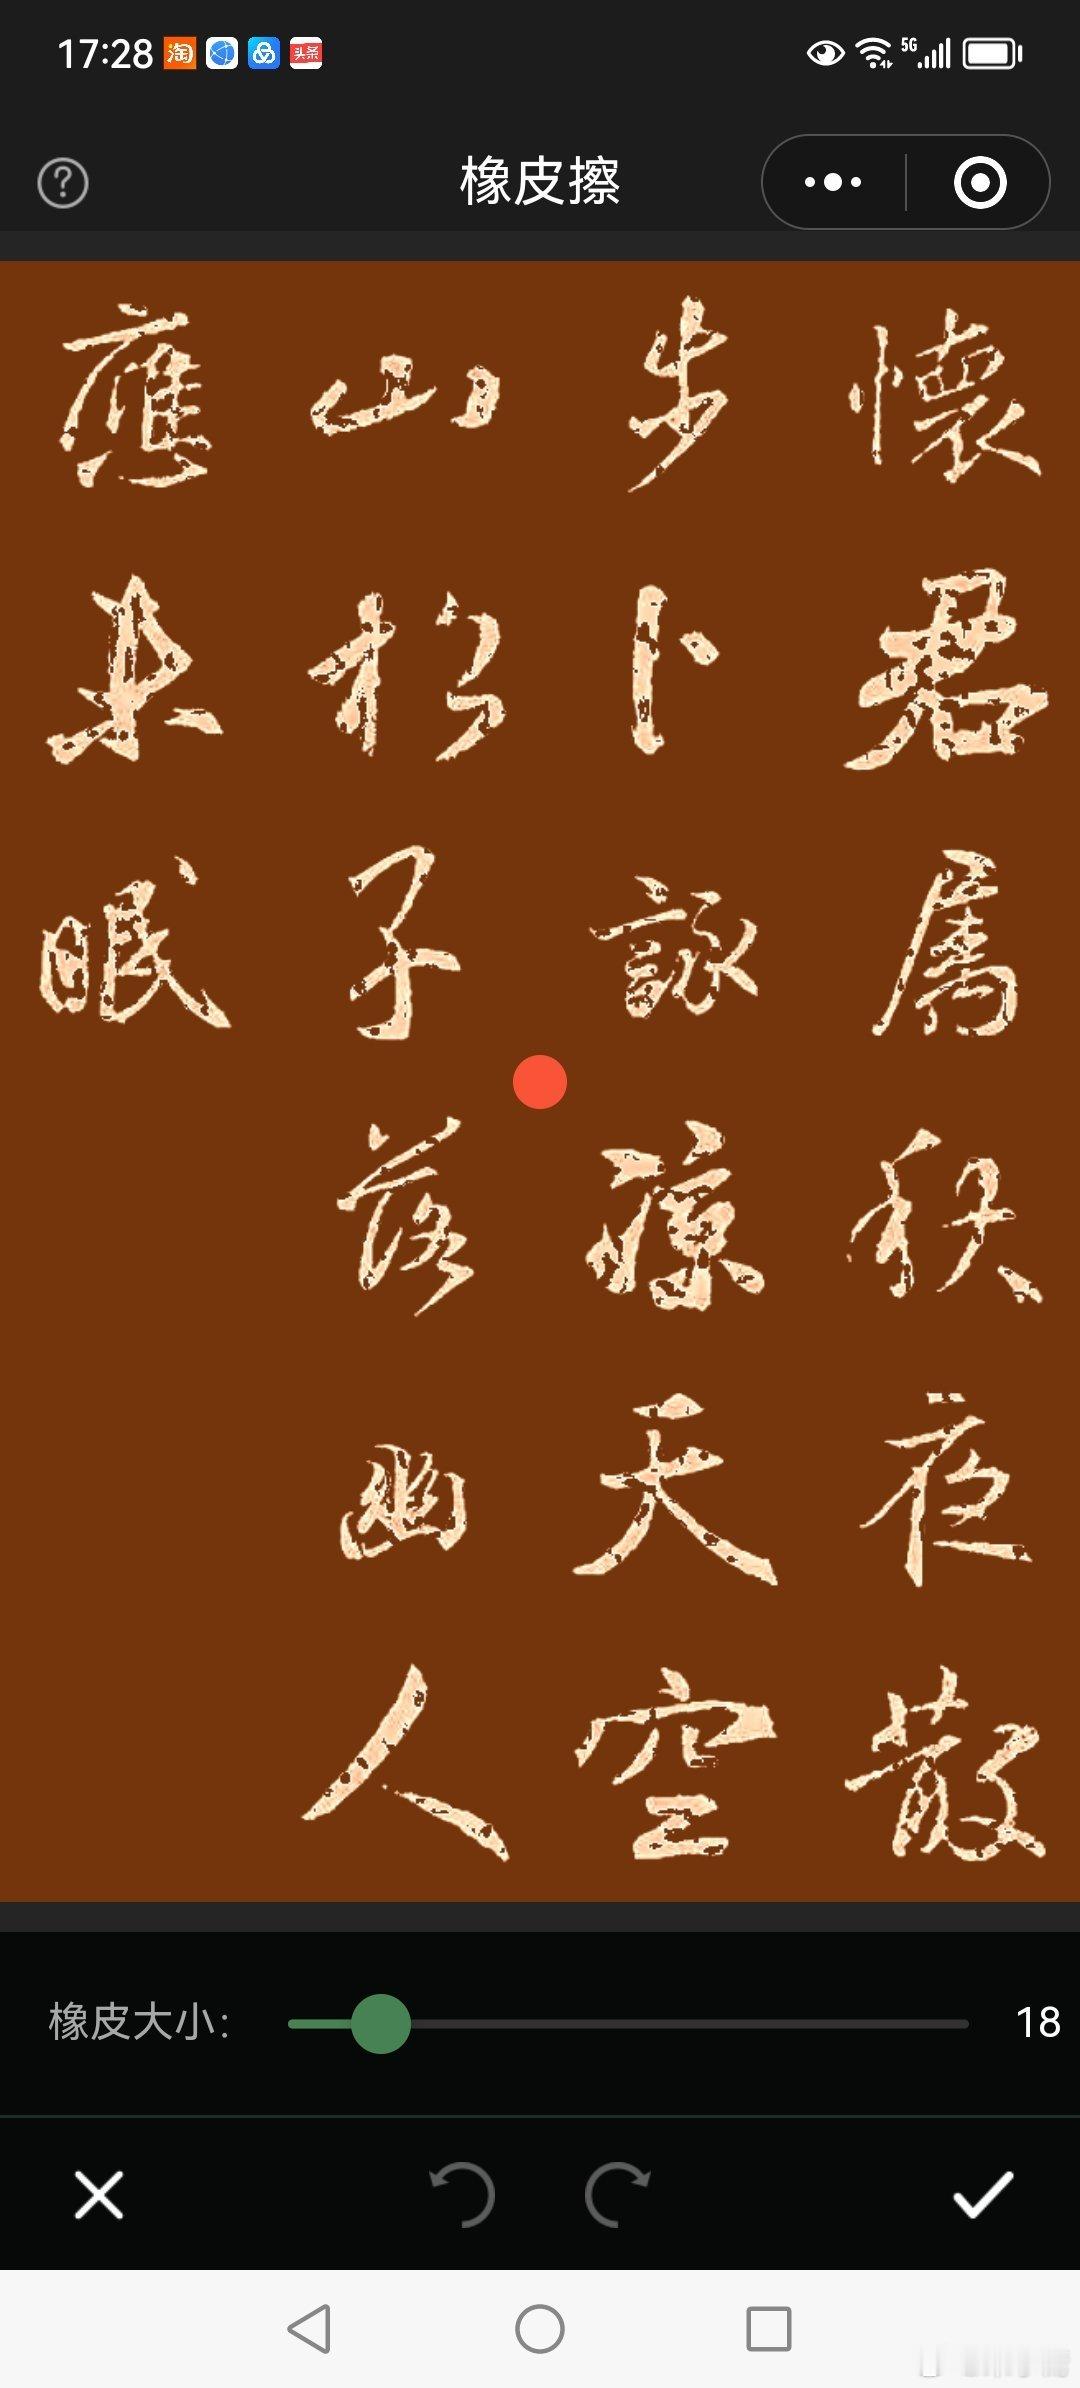 17:28 淘 头条 5G
橡皮擦
懷君属秋夜散
步卜詠涼天空
山松子落幽人
應未眠
橡皮大小: 18